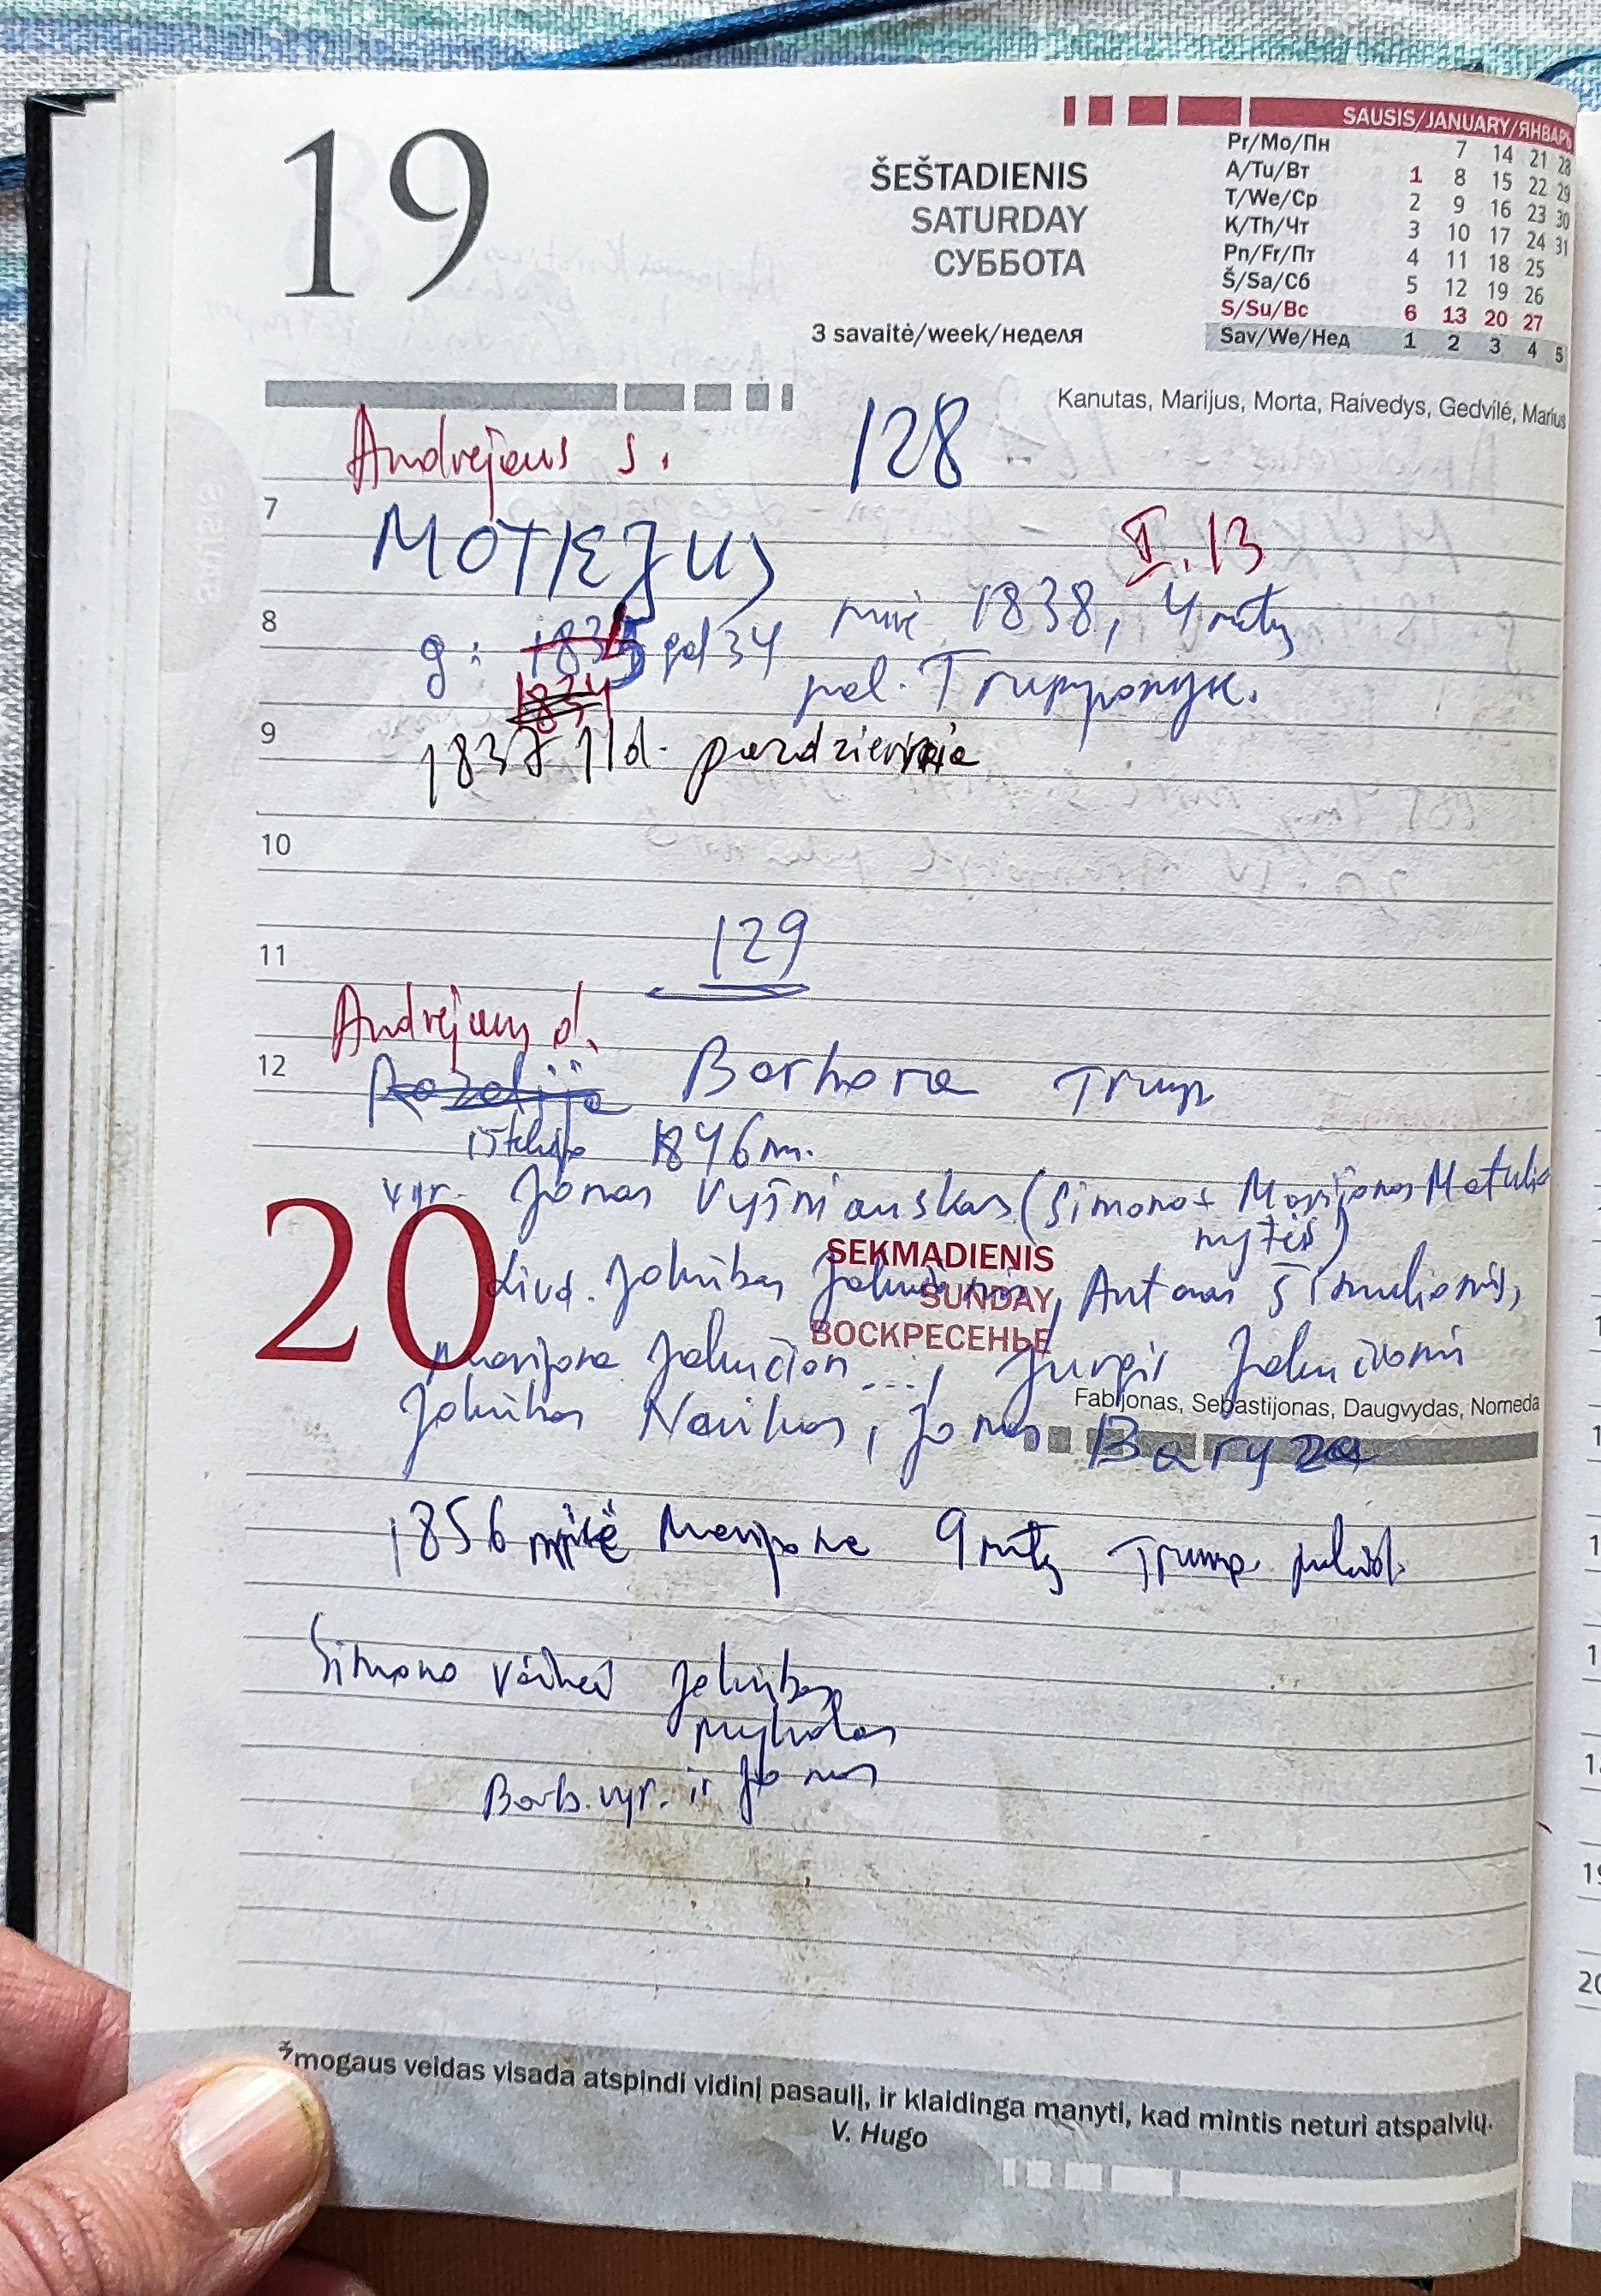 19
ŠEŠTADIENIS
SATURDAY
СУББОТА
3 savaitė/week/неделя
SAUSIS/JANUARY/ЯНВАРЬ
Pr/Mo/Пн 7 14 21 28
A/Tu/Вт 1 8 15 22 29
T/We/Ср 2 9 16 23 30
K/Th/Чт 3 10 17 24 31
Pn/Fr/Пт 4 11 18 25
Š/Sa/Сб 5 12 19 26
S/Su/Вс 6 13 20 27
Sav/We/Нед 1 2 3 4 5
Kanutas, Marijus, Morta, Raivedys, Gedvilė, Marius
Andrejaus s. 128
7
MOTIEJUS II.13
8
g: 1835 gal 34 mirė 1838, 4 mėtų
1834 pal. Trumponyk.
9
1837 11d. pazdziernika
10
129
11
Andrejaus d.
12
Rozalija Barbora Trump
ištekėjo 1846 m.
vyr. Jonas Vyšniauskas (Simono+Marijonos Matulio
nytės)
20
SEKMADIENIS
SUNDAY
ВОСКРЕСЕНЬЕ
Liud. Jokūbas Jakučionis, Antanas Šimulionis,
Marijona Jakučion..., Jurgis Jakučionis
Fabijonas, Sebastijonas, Daugvydas, Nomeda
Jokūbas Navikas, Jonas Baryza
1856 mirė Marijona 9 mėtų Trump. palaid.
Simono vaikai Jokūbas
Mykolas
Barb. vyr. ir Jonas
Žmogaus veidas visada atspindi vidinį pasaulį, ir klaidinga manyti, kad mintis neturi atspalvių.
V. Hugo